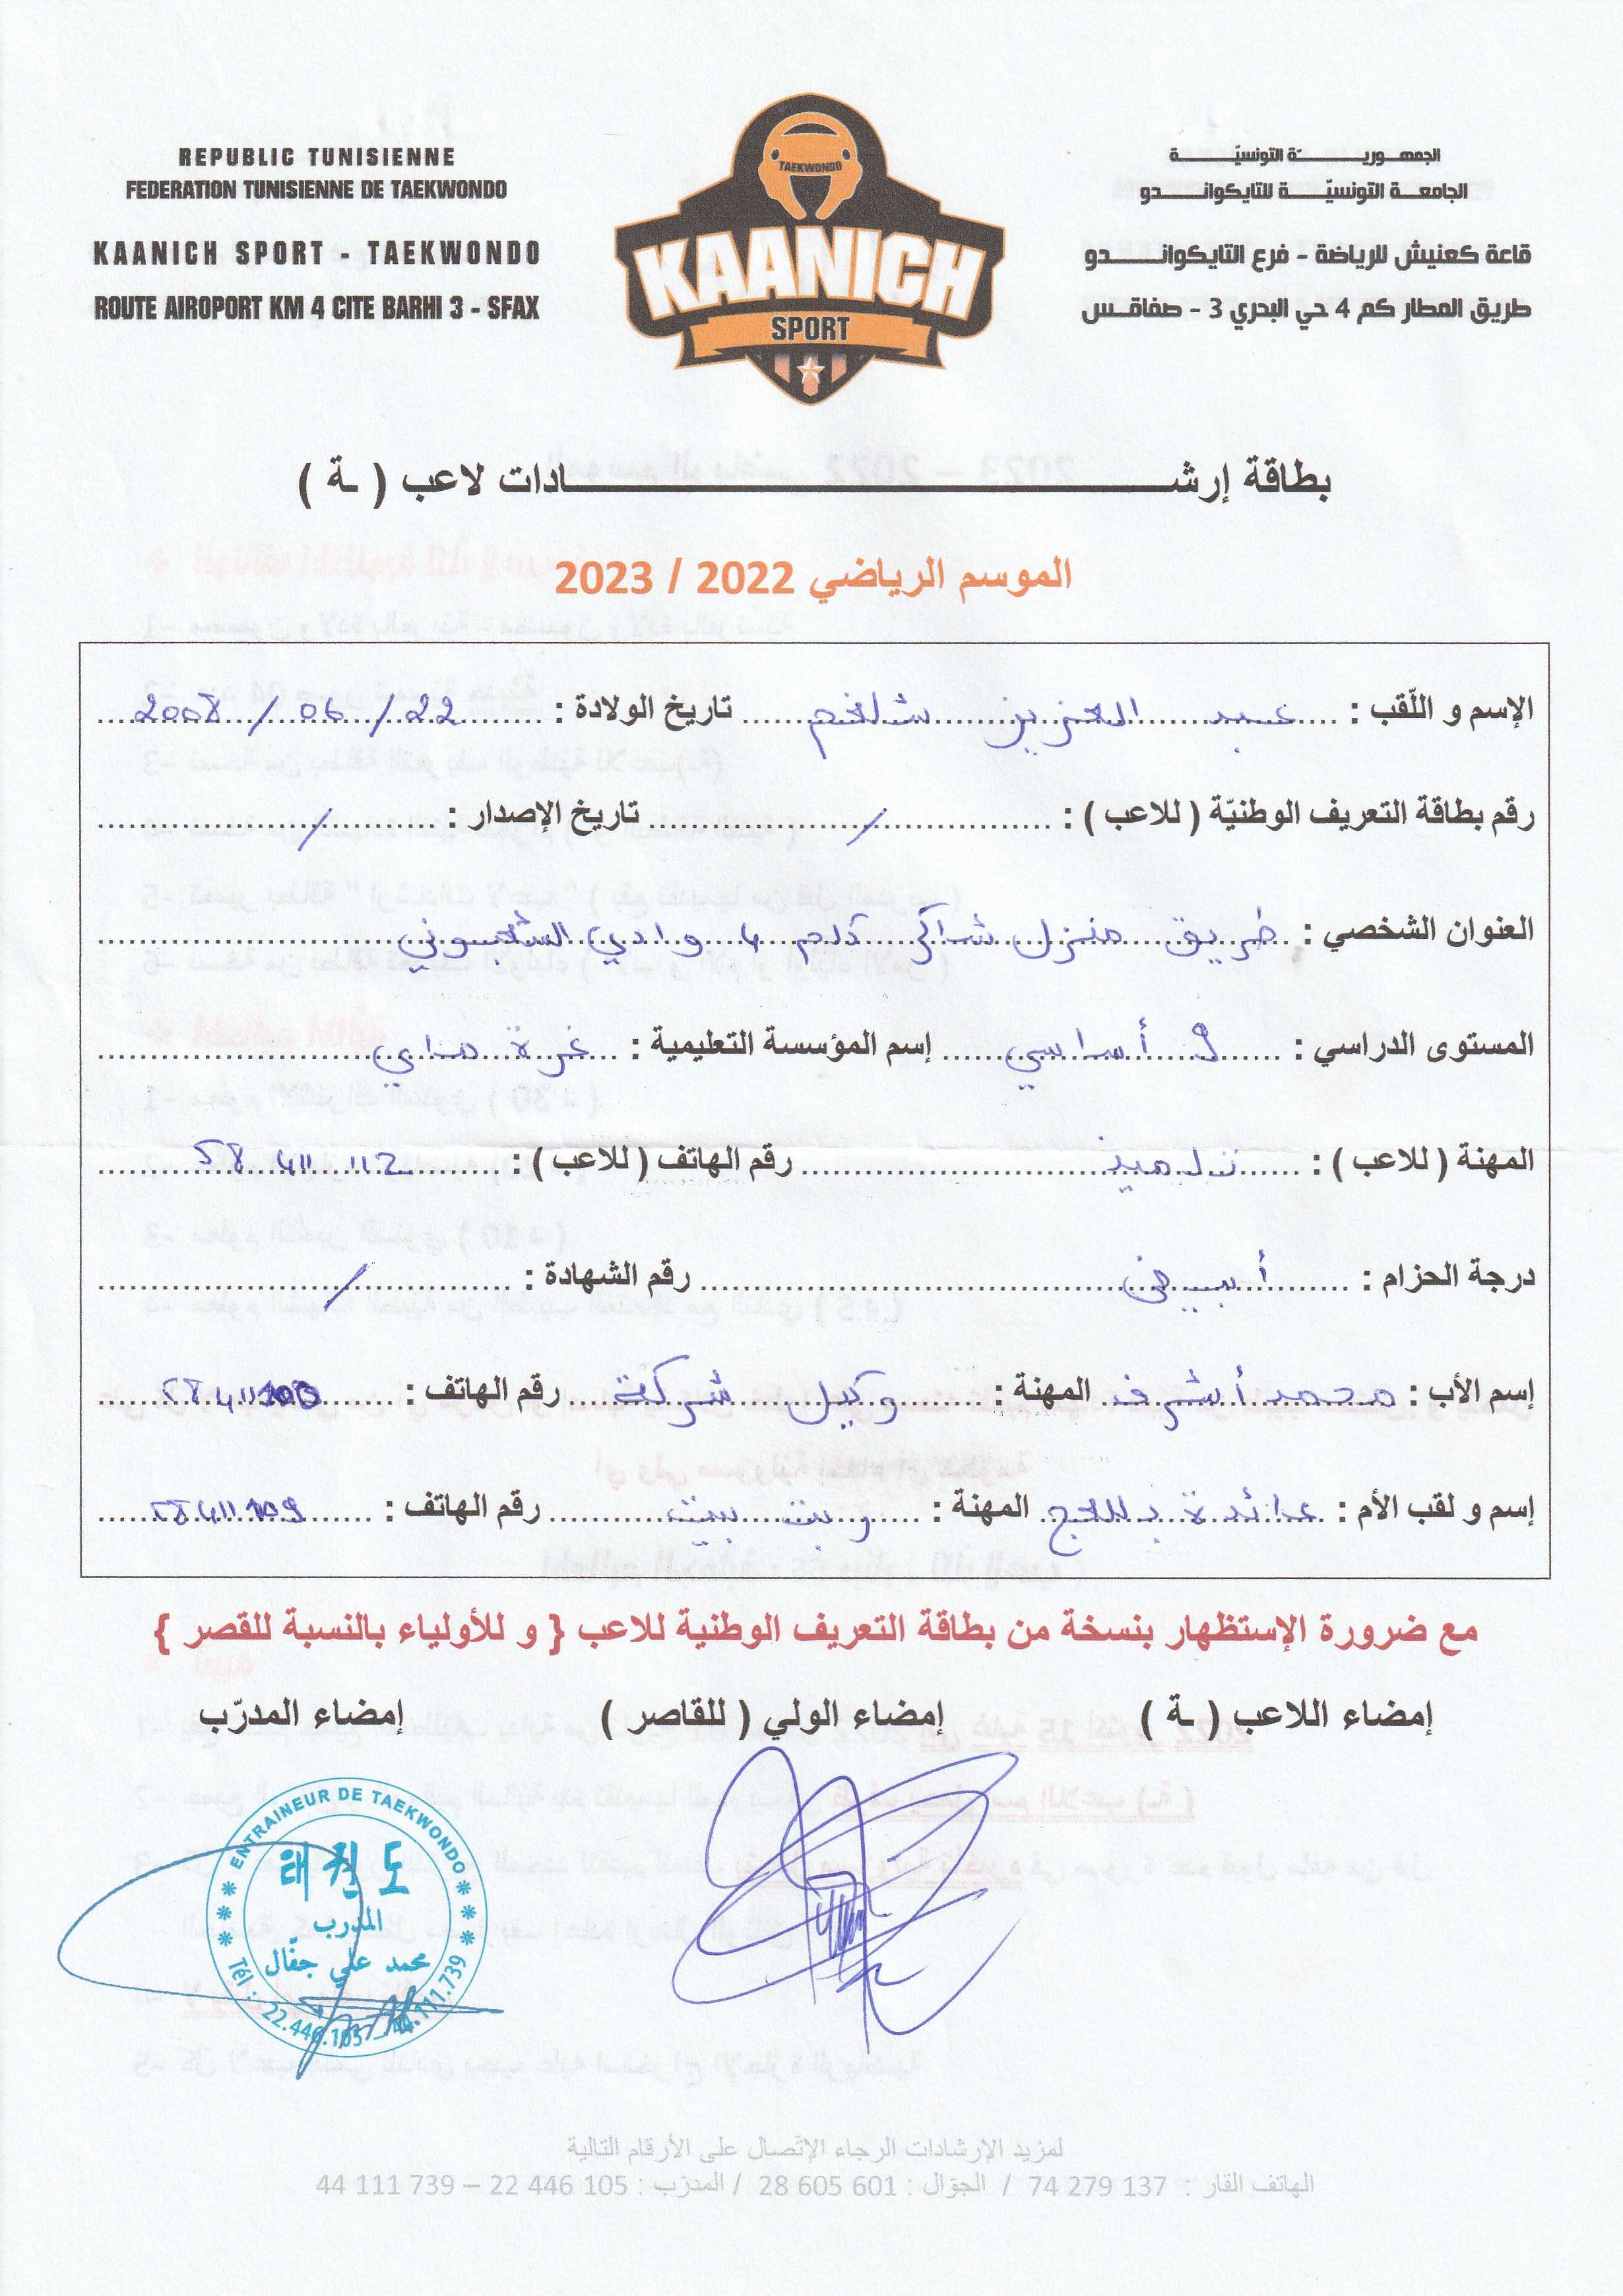 REPUBLIC TUNISIENNE
FEDERATION TUNISIENNE DE TAEKWONDO
KAANICH SPORT - TAEKWONDO
ROUTE AIROPORT KM 4 CITE BARHI 3 - SFAX
TAEKWONDO
KAANICH
SPORT
الجمهورية التونسيّة
الجامعة التونسيّة للتايكواندو
قاعة كعنيش للرياضة - فرع التايكواندو
طريق المطار كم 4 حي البحري 3 - صفاقس
بطاقة إرشادات لاعب ( ـة )
الموسم الرياضي 2022 / 2023
الإسم و اللّقب : عبد العزيز شلغم تاريخ الولادة : 22 / 06 / 2008
رقم بطاقة التعريف الوطنيّة ( للاعب ) : / تاريخ الإصدار : /
العنوان الشخصي : طريق منزل شاكر كلم 4 وادي الشعبوني
المستوى الدراسي : 9 أساسي إسم المؤسسة التعليمية : غرة ماي
المهنة ( للاعب ) : تلميذ رقم الهاتف ( للاعب ) : 58 411 112
درجة الحزام : أبيض رقم الشهادة : /
إسم الأب : محمد أشرف المهنة : وكيل شركة رقم الهاتف : 58 411
إسم و لقب الأم : عائدة بللعج المهنة : ربت بيت رقم الهاتف : 58 411 109
مع ضرورة الإستظهار بنسخة من بطاقة التعريف الوطنية للاعب { و للأولياء بالنسبة للقصر }
إمضاء اللاعب ( ـة ) إمضاء الولي ( للقاصر ) إمضاء المدرّب
ENTRAINEUR DE TAEKWONDO
태권도
المدرب
محمد علي جفّال
Tél : 22.446.105 - 44.111.739
لمزيد الإرشادات الرجاء الإتّصال على الأرقام التالية
الهاتف القار : 74 279 137 / الجوّال : 28 605 601 / المدرّب : 22 446 105 – 44 111 739